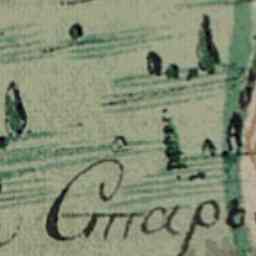 Старъ